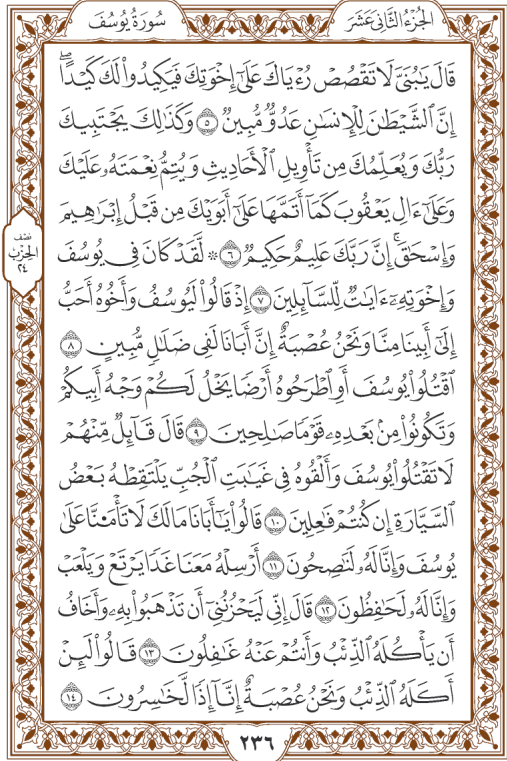 سُورَةُ يُوسُفَ
الجُزْءُ الثَّانِي عَشَرَ
قَالَ يَٰبُنَيَّ لَا تَقۡصُصۡ رُءۡيَاكَ عَلَىٰٓ إِخۡوَتِكَ فَيَكِيدُواْ لَكَ كَيۡدًاۖ
إِنَّ ٱلشَّيۡطَٰنَ لِلۡإِنسَٰنِ عَدُوّٞ مُّبِينٞ ٥ وَكَذَٰلِكَ يَجۡتَبِيكَ
رَبُّكَ وَيُعَلِّمُكَ مِن تَأۡوِيلِ ٱلۡأَحَادِيثِ وَيُتِمُّ نِعۡمَتَهُۥ عَلَيۡكَ
وَعَلَىٰٓ ءَالِ يَعۡقُوبَ كَمَآ أَتَمَّهَا عَلَىٰٓ أَبَوَيۡكَ مِن قَبۡلُ إِبۡرَٰهِيمَ
وَإِسۡحَٰقَۚ إِنَّ رَبَّكَ عَلِيمٌ حَكِيمٞ ٦ ۞ لَّقَدۡ كَانَ فِي يُوسُفَ
نصف
الحزب
٢٤
وَإِخۡوَتِهِۦٓ ءَايَٰتٞ لِّلسَّآئِلِينَ ٧ إِذۡ قَالُواْ لَيُوسُفُ وَأَخُوهُ أَحَبُّ
إِلَىٰٓ أَبِينَا مِنَّا وَنَحۡنُ عُصۡبَةٌ إِنَّ أَبَانَا لَفِي ضَلَٰلٖ مُّبِينٍ ٨
ٱقۡتُلُواْ يُوسُفَ أَوِ ٱطۡرَحُوهُ أَرۡضٗا يَخۡلُ لَكُمۡ وَجۡهُ أَبِيكُمۡ
وَتَكُونُواْ مِنۢ بَعۡدِهِۦ قَوۡمٗا صَٰلِحِينَ ٩ قَالَ قَآئِلٞ مِّنۡهُمۡ
لَا تَقۡتُلُواْ يُوسُفَ وَأَلۡقُوهُ فِي غَيَٰبَتِ ٱلۡجُبِّ يَلۡتَقِطۡهُ بَعۡضُ
ٱلسَّيَّارَةِ إِن كُنتُمۡ فَٰعِلِينَ ١٠ قَالُواْ يَٰٓأَبَانَا مَا لَكَ لَا تَأۡمَ۬نَّا عَلَىٰ
يُوسُفَ وَإِنَّا لَهُۥ لَنَٰصِحُونَ ١١ أَرۡسِلۡهُ مَعَنَا غَدٗا يَرۡتَعۡ وَيَلۡعَبۡ
وَإِنَّا لَهُۥ لَحَٰفِظُونَ ١٢ قَالَ إِنِّي لَيَحۡزُنُنِيٓ أَن تَذۡهَبُواْ بِهِۦ وَأَخَافُ
أَن يَأۡكُلَهُ ٱلذِّئۡبُ وَأَنتُمۡ عَنۡهُ غَٰفِلُونَ ١٣ قَالُواْ لَئِنۡ
أَكَلَهُ ٱلذِّئۡبُ وَنَحۡنُ عُصۡبَةٌ إِنَّآ إِذٗا لَّخَٰسِرُونَ ١٤
٢٣٦